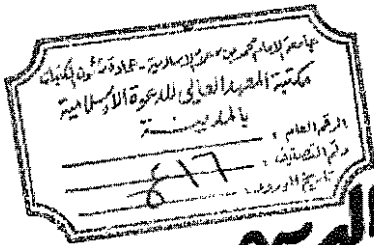 جامعة الإمام محمد بن سعود الإسلامية - عمادة شئون المكتبات
مكتبة المعهد العالي للدعوة الإسلامية
بالمدينة
الرقم العام :
رقم التصنيف :
تاريخ الورود :
٤١٦